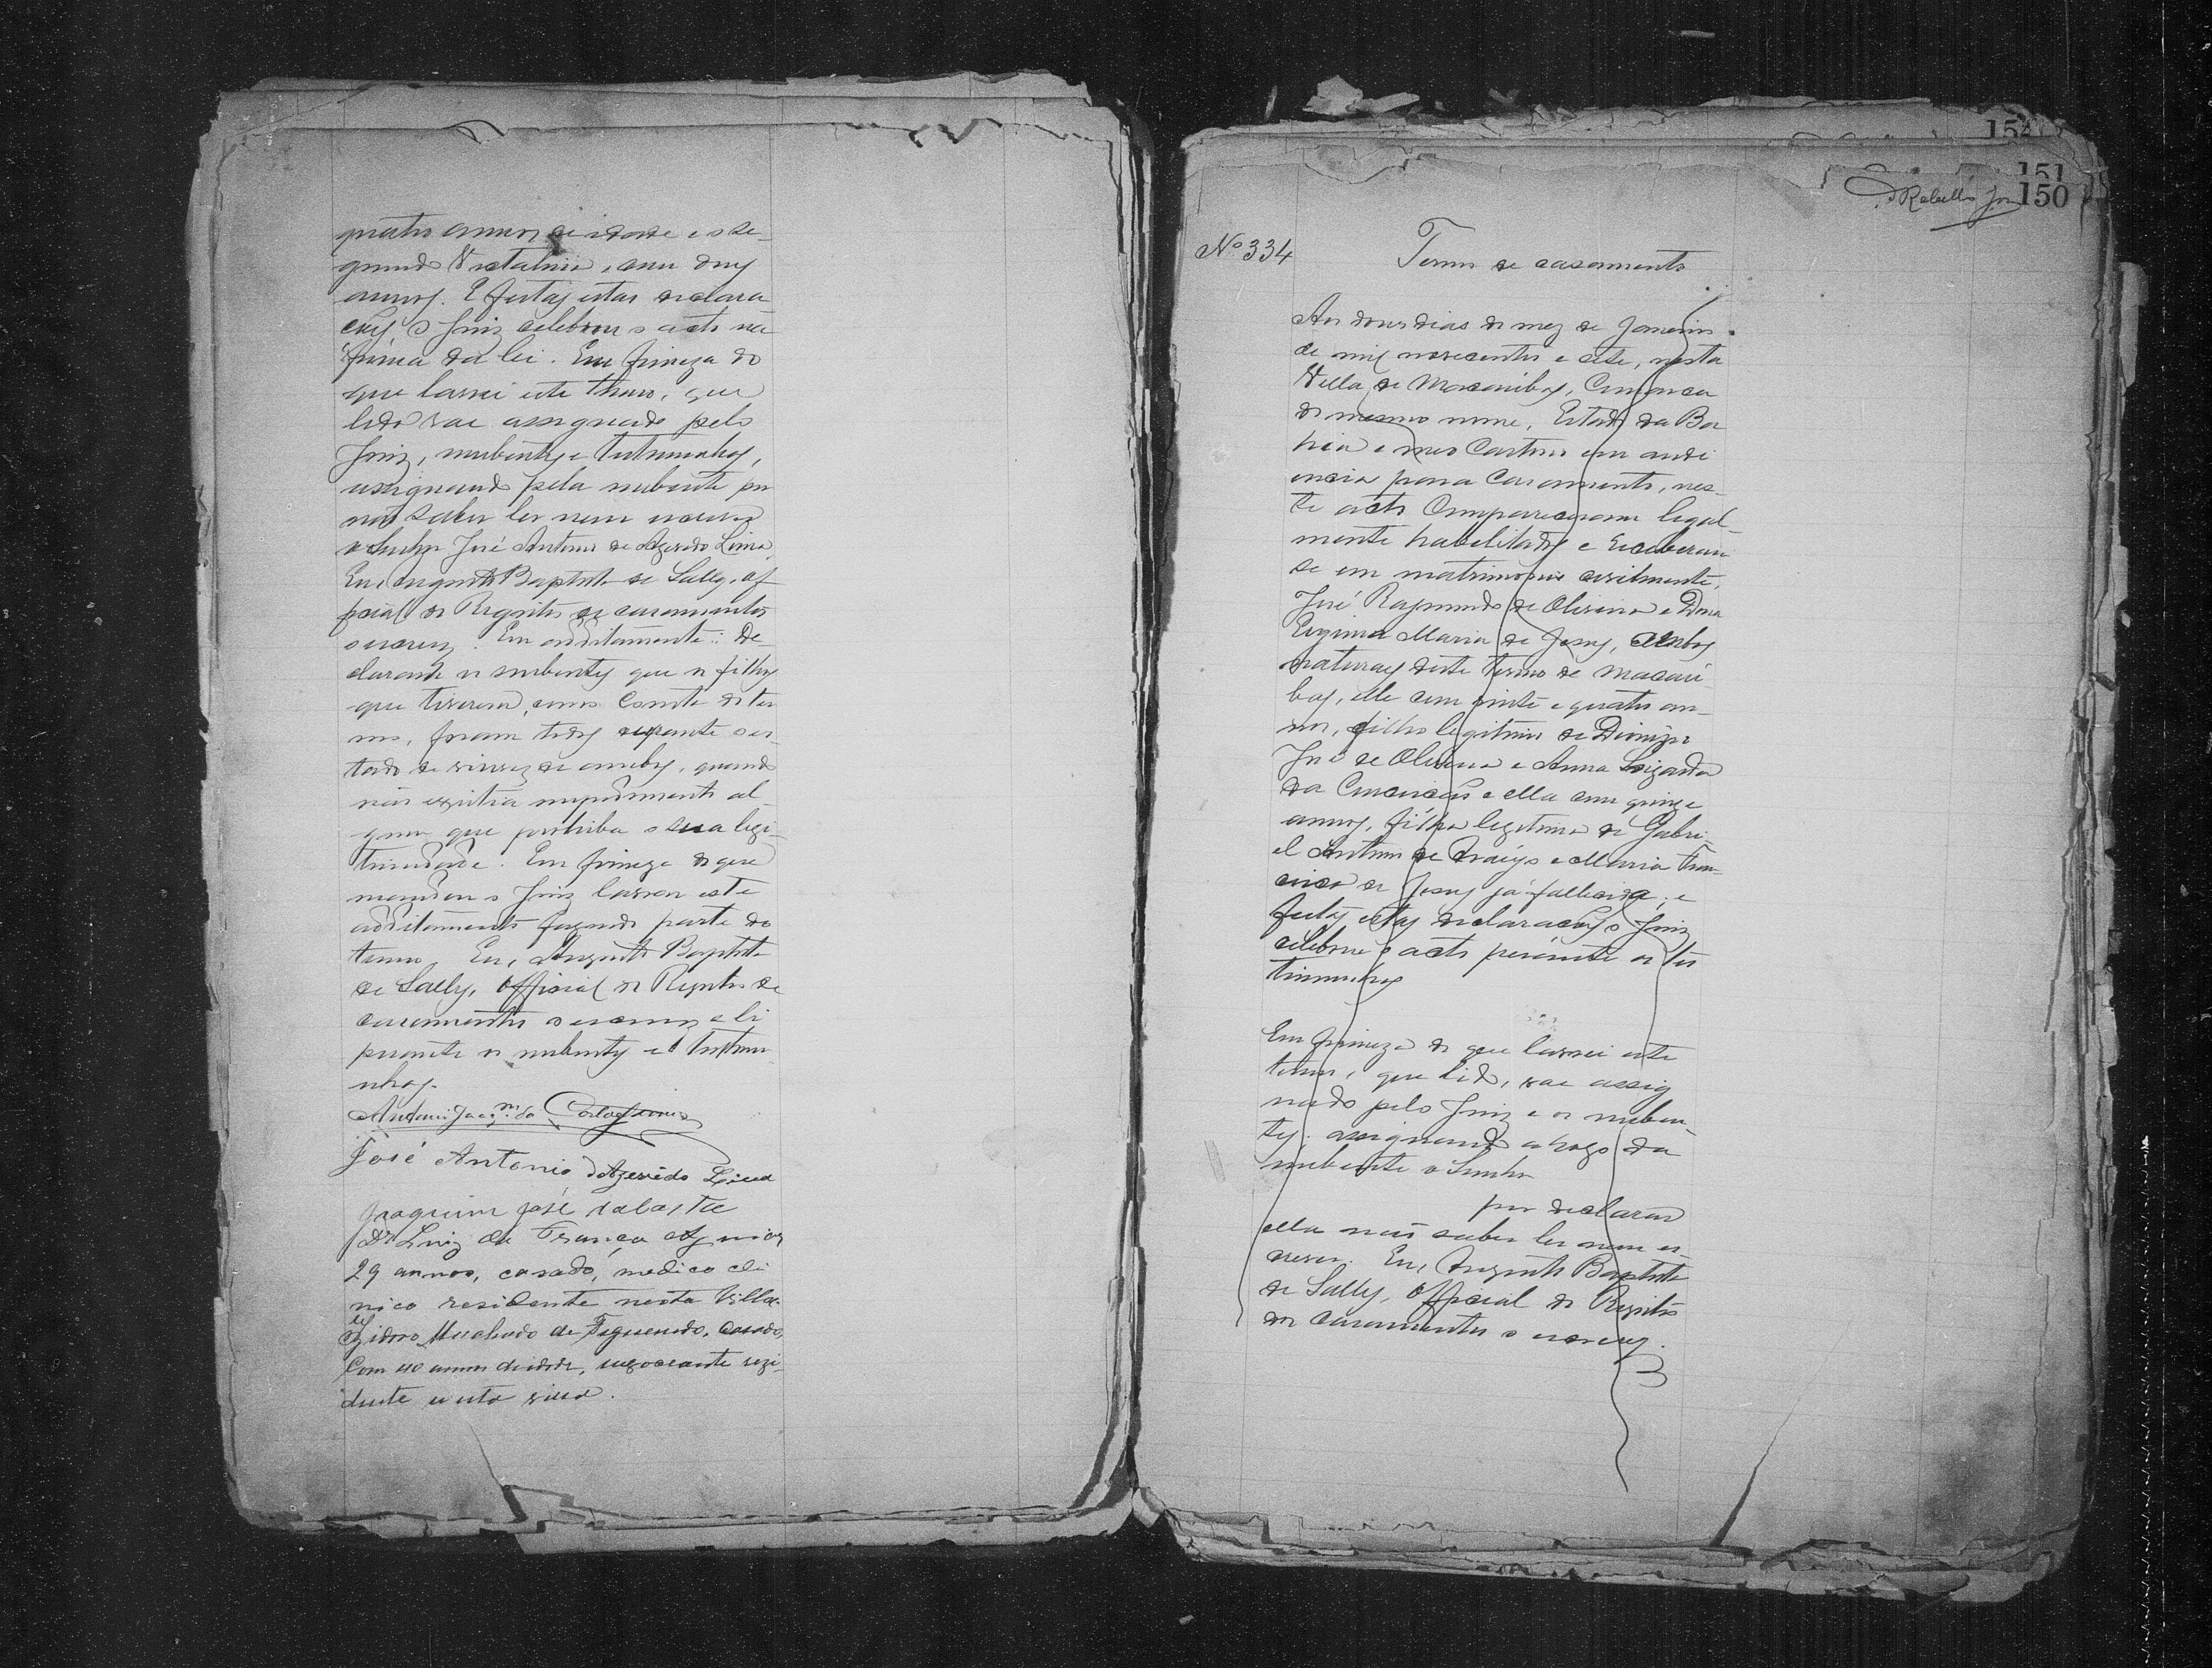 quatro annos de idade e o se-
gundo Victalina, com dous
annos. E feitas estas declara
ções o Juiz celebrou o acto na
fórma da lei. Em firmeza do
que lavrei este termo, que
lido vae assignado pelo
Juiz, nubentes e testemunhas,
assignando pela nubente por
não saber ler nem escrever
o Senhor José Antonio de Azevedo Lima.
Eu, Augusto Baptista de Salles, of
ficial do Registro de casamentos
o escrevy. Em additamento: De-
clarando os nubentes que os filhos
que tiveram, como consta do ter
mo, foram todos durante o es-
tado de viuvez de ambos, quando
não existia impedimento al-
gum que prohiba a sua legi-
timidade. Em firmeza do que
mandou o Juiz lavrar este
additamento fazendo parte do
termo. Eu, Augusto Baptista
de Salles, Official do Registro de
casamentos o escrevy e li
perante os nubentes e testemu-
nhas.
José Antonio d'Azevedo Lima
Joaquim José
Dr. Luiz da França
29 annos, casado, medico cli
nico residente nesta Villa.
Izidoro Machado de Figueiredo, casado,
com annos de idade, negociante rezi-
dente nesta villa.
154
151
150
Rabello
Nº 334
Termo de casamento
Aos dous dias do mez de Janeiro
de mil novecentos e sete, nesta
Villa de Macaúbas, Comarca
do mesmo nome, Estado da Ba
hia e meo Cartorio em audi
encia para Casamento, nes-
te acto Compareceram legal-
mente habilitados e Receberam
se em matrimonio civilmente,
José Raymundo de Oliveira e Dona
Maria de Jesus, ambos
naturaes deste termo de Macaú
bas, elle com vinte e quatro an-
nos, filho legitimo de Dionizio
José de Oliveira e Anna
da Conceição e ella com quinze
annos, filha legitima de Gabri-
el Antonio de Araújo e Maria Fran-
cisca de Jesus já fallecida; e
feitas estas declarações o Juiz
celebrou o acto perante as tes
timunhas
Em firmeza do que lavrei este
termo, que lido, vae assig
nado pelo Juiz e os nuben-
tes. assignando a rogo da
nubente o Senhor
por declarar
ella não saber ler nem es-
crever. Eu, Augusto Baptista
de Salles, Official do Registro
dos casamentos o escrevy.